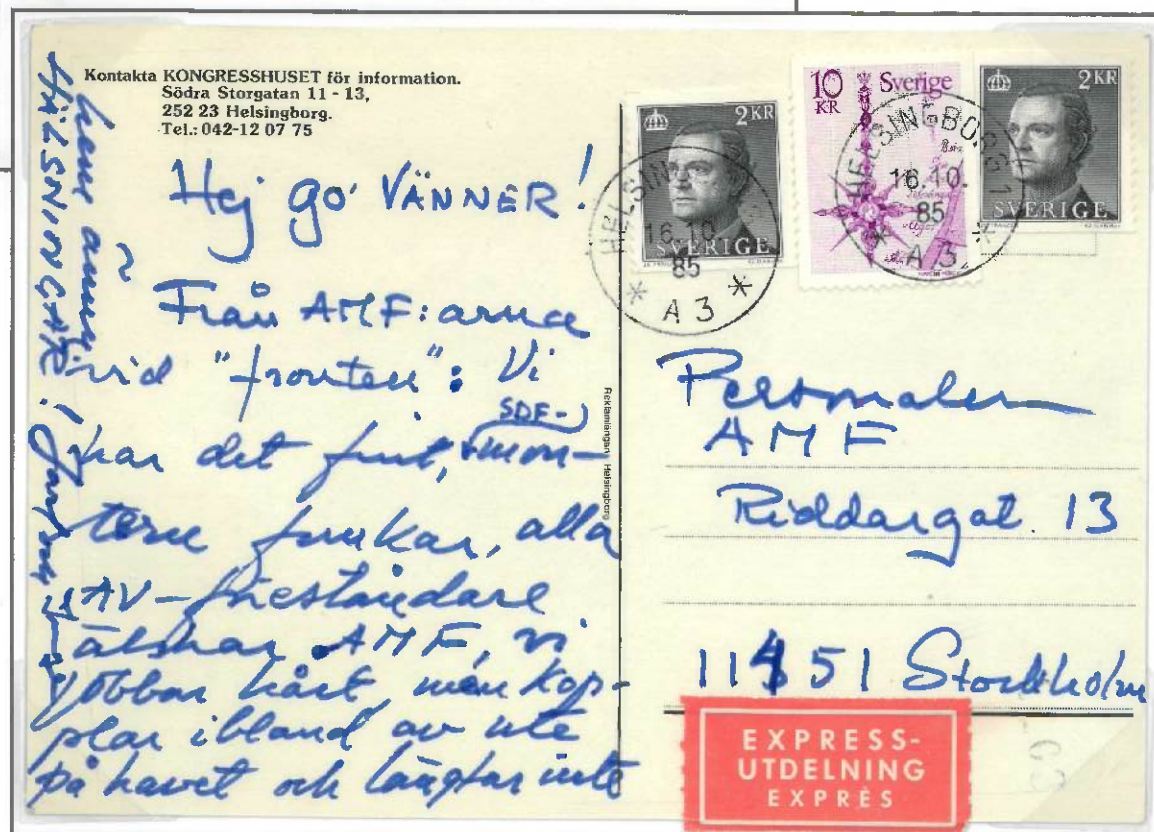 Kontakta KONGRESSHUSET för information.
Södra Storgatan 11 - 13,
252 23 Helsingborg.
Tel.: 042-12 07 75
Hej go' VÄNNER!
Från AMF:arna
vid "fronten": Vi
har det fint, SDF-mon-
tern funkar, alla
AV-föreståndare
älskar AMF, vi
jobbar hårt, men kop-
plar ibland av ute
på havet och längtar inte
hem ännu
HÄLSNINGAR!
Reklamlängan Helsingborg
2 KR
SVERIGE
10 KR
Sverige
2 KR
SVERIGE
HELSINGBORG
16.10.
85
* A 3 *
HELSINGBORG 1
16.10.
85
* A 3 *
Personalen
AMF
Riddargat. 13
11451 Stockholm
EXPRESS-
UTDELNING
EXPRÈS